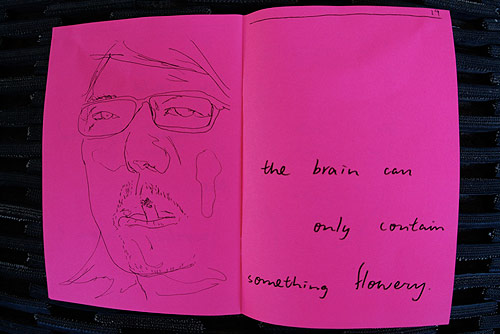 19
the brain can
only contain
something flowery.